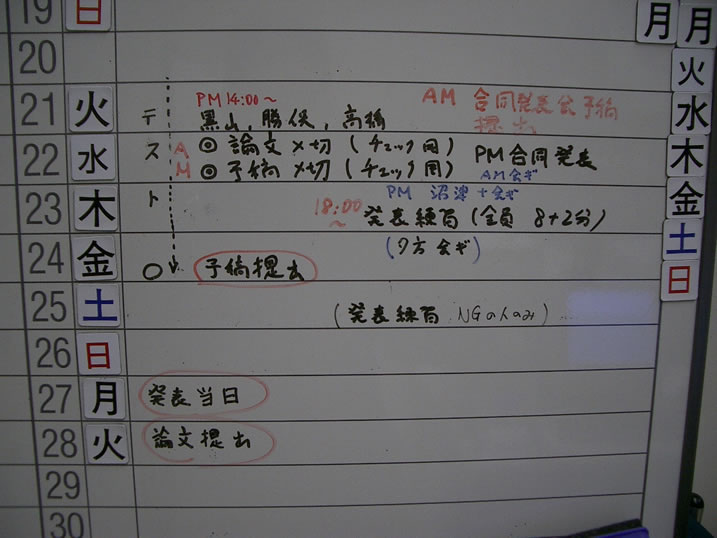 19 日
月 月
20
火
PM 14:00～
AM 合同発表会予稿
提出
21 火 黒山, 勝俣, 高橋
水
22 水 AM ◎ 論文〆切 (チェック用) PM合同発表
◎ 予稿〆切 (チェック用) AM会ギ
木
テスト
PM 沼津+会ギ
金
23 木 18:00～ 発表練習 (全員 8+2分)
土
(夕方会ギ)
24 金 予稿提出
日
25 土 (発表練習 NGの人のみ)
26 日
27 月 発表当日
28 火 論文提出
29
30